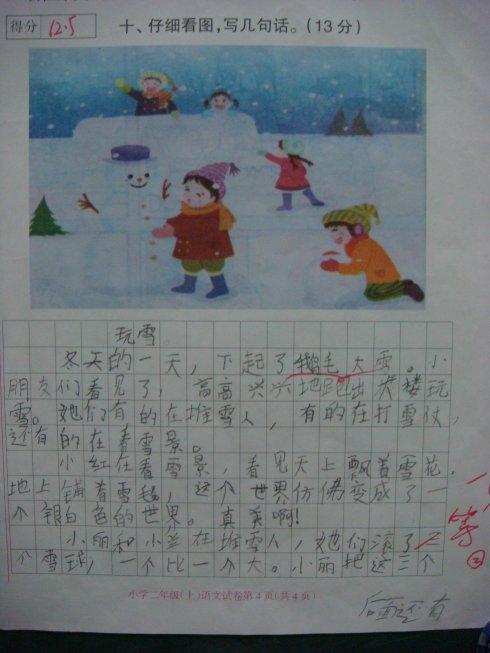 得分 12.5
十、仔细看图,写几句话。(13分)
玩雪。
冬天的一天,下起了鹅毛大雪。小
朋友们看见了,高高兴兴地跑出大楼玩
雪。她们有的在堆雪人,有的在打雪仗,
还有的在看雪景。
小红在看雪景,看见天上飘着雪花,
地上铺着雪毯,这个世界仿佛变成了一
个银白色的世界。真美啊!
小丽和小兰在堆雪人,她们滚了三
个雪球,一个比一个大。小丽把这三个
小学二年级(上)语文试卷第4页(共4页)
后面还有